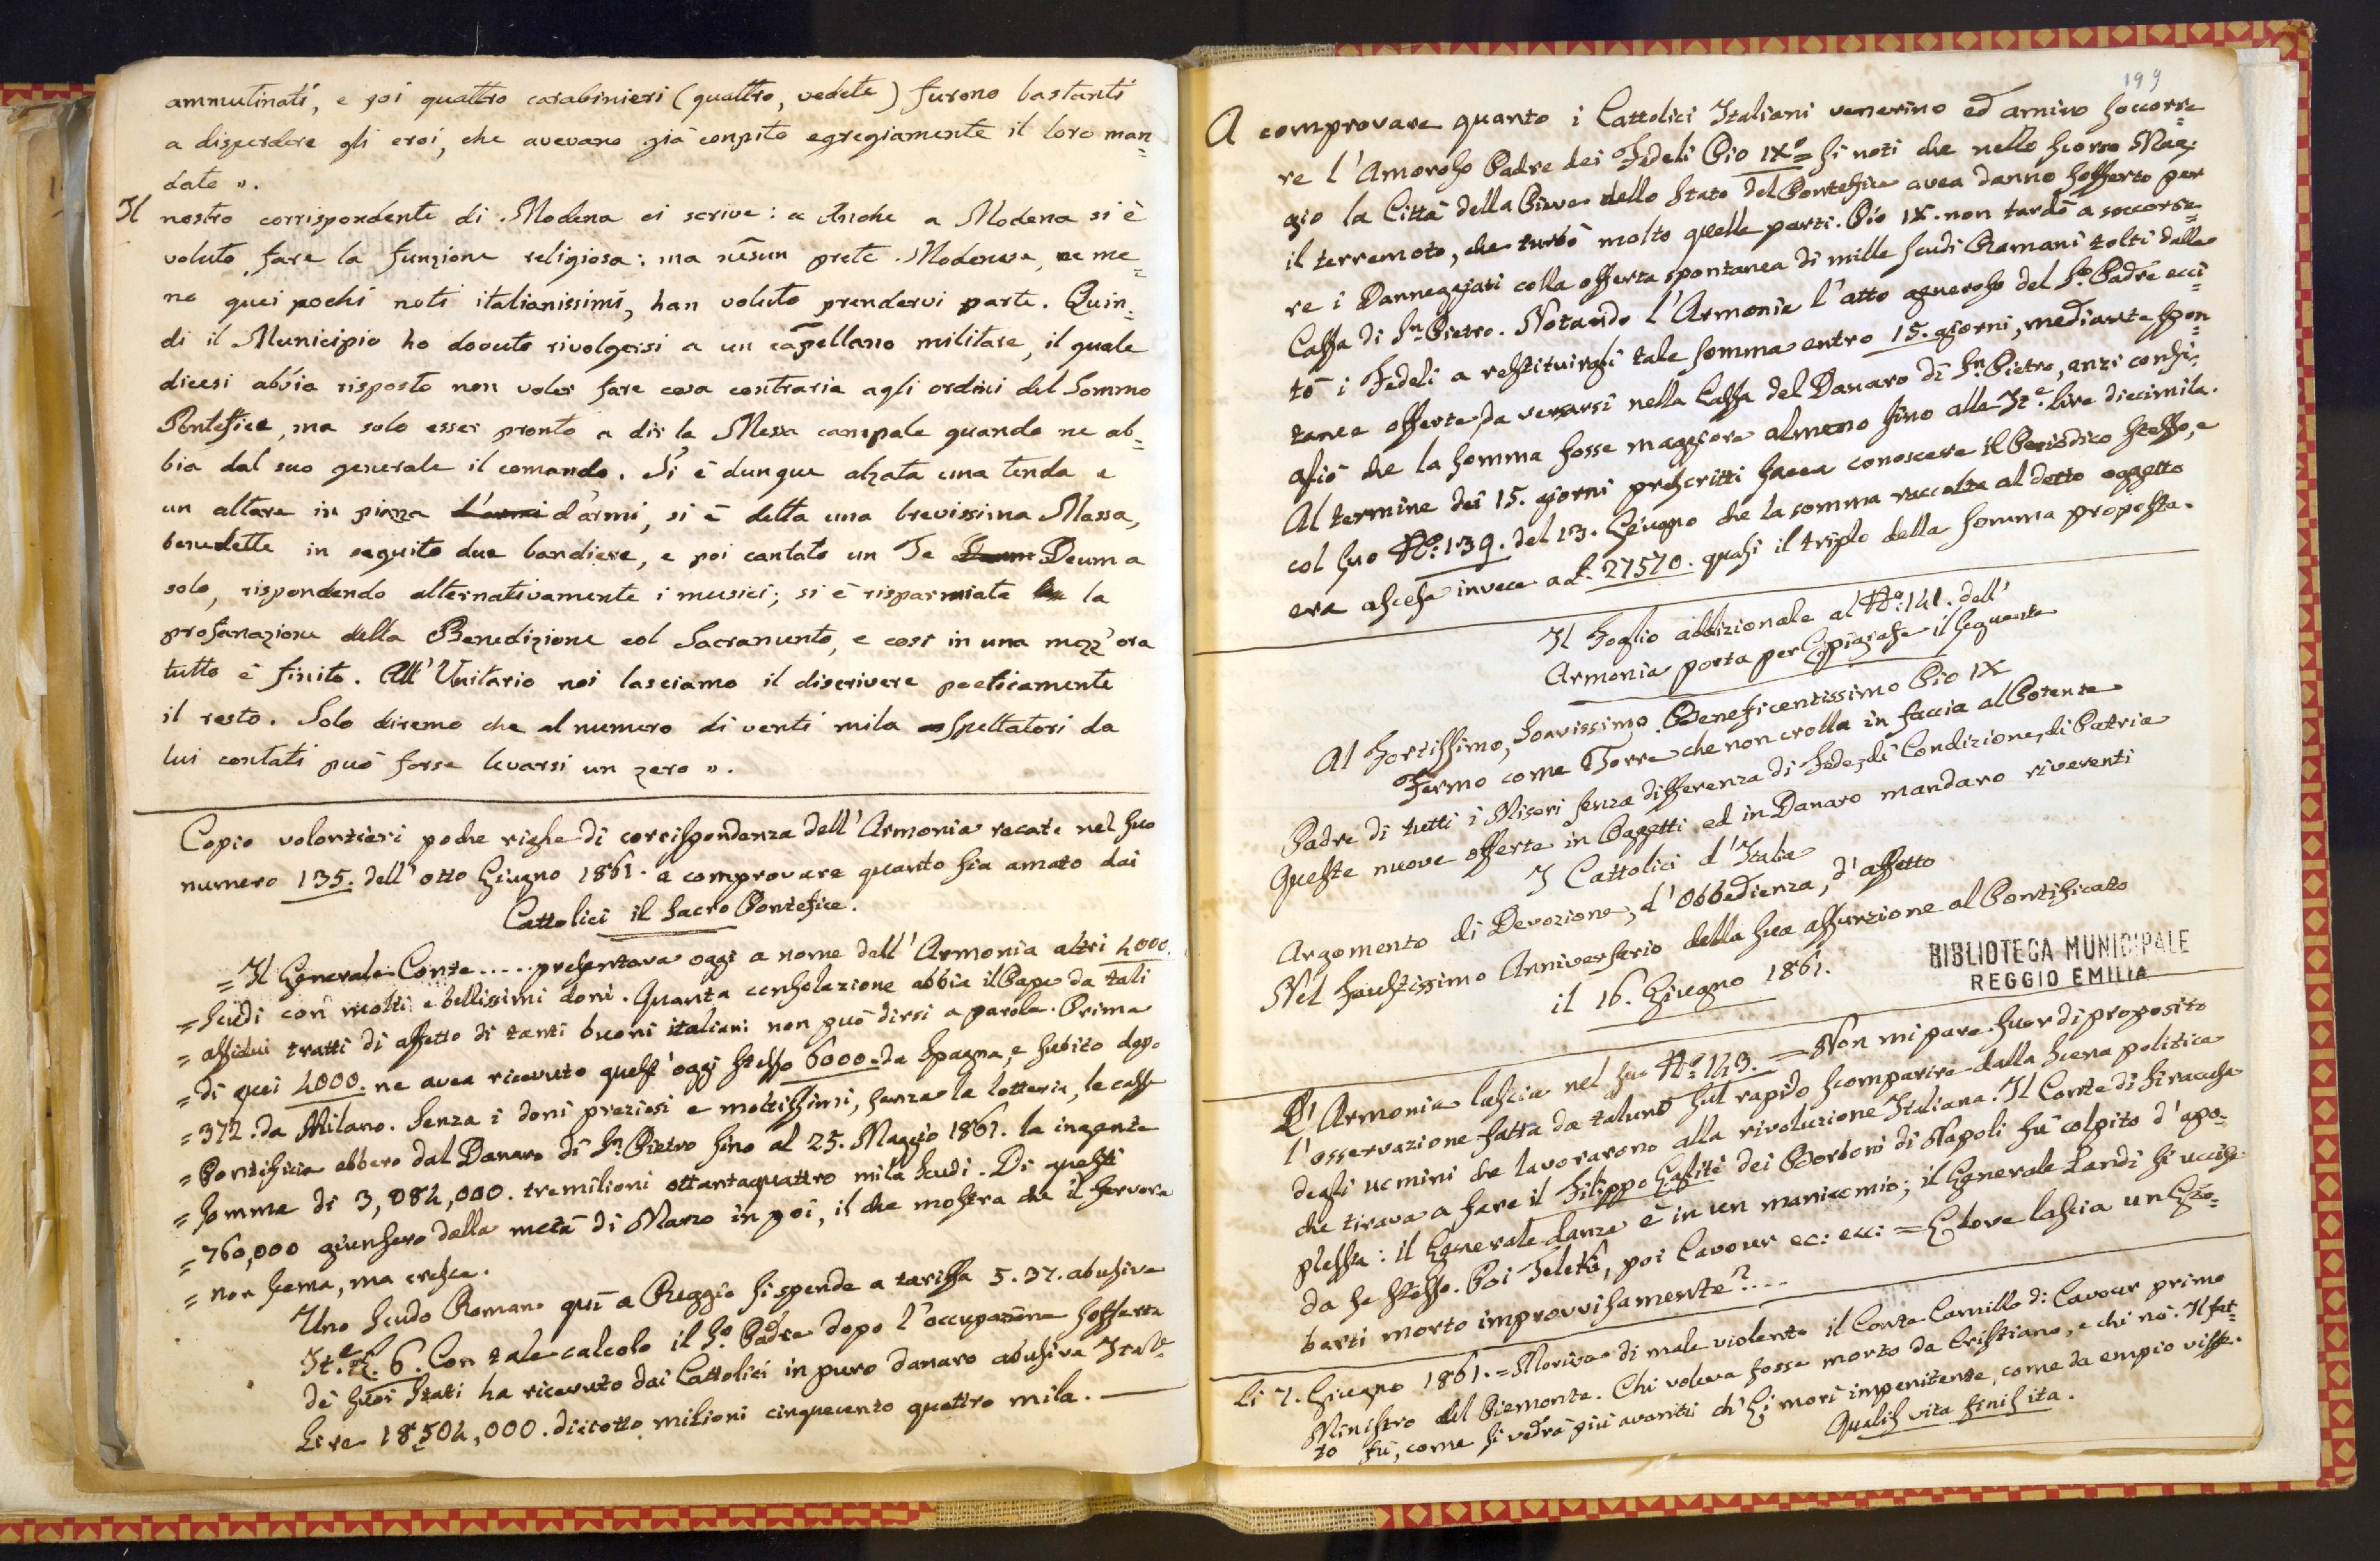 ammutinati, e poi quattro carabinieri (quattro, vedete) furono bastanti
a disperdere gli eroi, che avevano già conpito egregiamente il loro man=
dato ».
Il nostro corrispondente di Modena ci scrive: « Anche a Modena si è
voluto fare la funzione religiosa: ma nesun prete Modenese, ne me=
no quei pochi noti italianissimi, han voluto prendervi parte. Quin=
di il Municipio ha dovuto rivolgersi a un capellano militare, il quale
dicesi abbia risposto non voler fare cosa contraria agli ordini del Sommo
Pontefice, ma solo esser pronto a dir la Messa campale quando ne ab=
bia dal suo generale il comando. Si è dunque alzata una tenda e
un altare in piazza d'armi, si è detta una brevissima Massa,
benedette in seguito due bandiere, e poi cantato un Te Deum a
solo, rispondendo alternativamente i musici; si è risparmiata la
profanazione della Benedizione col Sacramento, e così in una mezz'ora
tutto è finito. All'Unitario noi lasciamo il discrivere poeticamente
il resto. Solo diremo che al numero di venti mila spettatori da
lui contati può forse levarsi un zero ».
Copio volontieri poche righe di corrispondenza dell'Armonia recate nel suo
numero 135. dell'otto Giugno 1861. a comprovare quanto sia amato dai
Cattolici il Sacro Pontefice.
= Il Generale Conte ..... presentava oggi a nome dell'Armonia altri 4000.
= scudi con molti e bellissimi doni. Quanta consolazione abbia il Papa da tali
= assidui tratti di affetto di tanti buoni italiani non può dirsi a parole. Prima
= di quei 4000. ne avea ricevuto quest'oggi stesso 6000. da Spagna, e subito dopo
= 372. da Milano. Senza i doni preziosi e moltissimi, senza la lotteria, le casse
= Pontificie ebbero dal Danaro di Sn. Pietro fino al 25. Maggio 1861. la ingente
= somma di 3,084,000. tremilioni ottantaquattro mila scudi. Di questi
= 760,000 giunsero dalla metà di Marzo in poi, il che mostra che il fervore
= non scema, ma cresce.
Uno Scudo Romano quì a Reggio si spende a tariffa 5.37. abusiva
It.e L. 6. Con tale calcolo il So. Padre dopo l'occupazione sofferta
dei suoi Stati ha ricevuto dai Cattolici in puro danaro abusive Ital.e
Lire 18,504,000. diciotto milioni cinquecento quattro mila.
199
A comprovare quanto i Cattolici Italiani venerino ed amino soccorre=
re l'Amoroso Padre dei Fedeli Pio IXo = si noti che nello scorso Mag=
gio la Città della Pieve dello Stato del Pontefice avea danno sofferto per
il terremoto, che turbò molto quelle parti. Pio IX. non tardò a soccorre=
re i Danneggiati colla offerta spontanea di mille scudi Romani tolti dalla
Cassa di Sn. Pietro. Notando l'Armonia l'atto generoso del So. Padre ecci=
tò i Fedeli a restituirgli tale somma entro 15. giorni, mediante spon=
tanee offerte da versarsi nella Cassa del Danaro di Sn. Pietro, anzi consi=
gliò che la somma fosse maggiore almeno fino alle It.e lire diecimila.
Al termine dei 15. giorni prescritti facea conoscere il Periodico stesso, e
col suo No. 139. del 13. Giugno che la somma raccolta al detto oggetto
era ascesa invece a L. 27570. quasi il triplo della somma proposta.
Il Foglio addizionale al No. 141. dell'
Armonia porta per Epigrafe il seguente
Al Fortissimo, Soavissimo, Beneficentissimo Pio IX
Fermo come Torre che non crolla in faccia al Potente
Padre di tutti i Miseri senza differenza di Fede, di Condizione, di Patria
Queste nuove offerte in Oggetti ed in Danaro mandaro riverenti
I Cattolici d'Italia
Argomento di Devozione, d'Obbedienza, d'affetto
Nel Faustissimo Anniversario della sua assunzione al Pontificato
il 16. Giugno 1861.
BIBLIOTECA MUNICIPALE
REGGIO EMILIA
L'Armonia lascia nel suo No. 143. = Non mi pare fuor di proposito
l'osservazione fatta da taluno sul rapido scomparire dalla scena politica
degli uomini che lavorarono alla rivoluzione Italiana. Il Conte di Siracusa
che tirava a fare il Filippo Egalité dei Borboni di Napoli fu colpito d'apo=
plessia: il Generale Lanza è in un manicomio; il Generale Landi si uccise
da se stesso. Poi Teleki, poi Cavour ec: ecc: = E dove lascia un Gio=
berti morto improvvisamente? ....
Li 7. Giugno 1861. = Moriva di male violento il Conte Camillo di Cavour primo
Ministro del Piemonte. Chi voleva fosse morto da Cristiano, e chi nò. Il fat=
to fu, come si vedrà più avanti ch'Ei morì impenitente, come da empio visse.
Qualis vita finis ita.